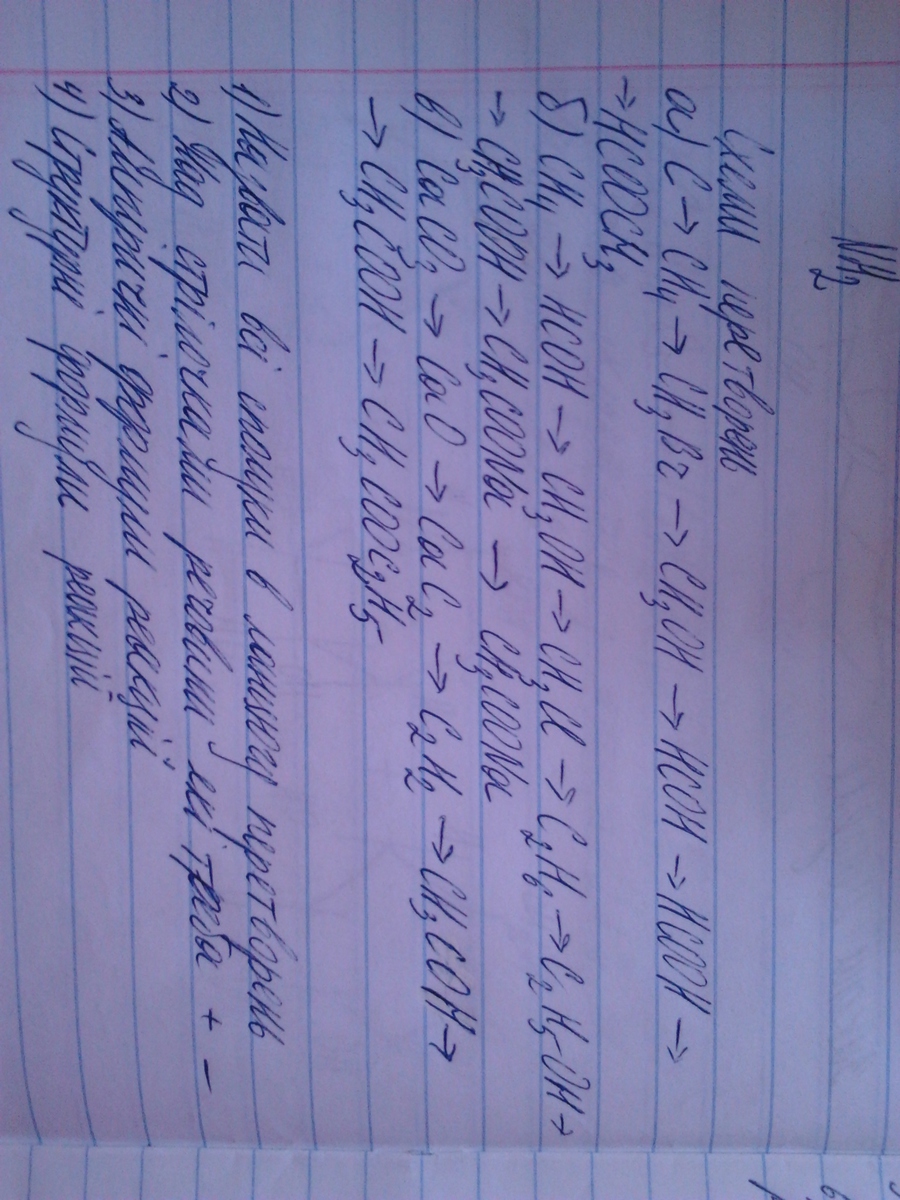 NH₂
Схеми перетворень
а) C → CH₄ → CH₃Br → CH₃OH → HCOH → HCOOH →
→ HCOOCH₃
б) CH₄ → HCOH → CH₃OH → CH₃Cl → C₂H₆ → C₂H₅OH →
→ CH₃COH → CH₃COONa → CH₃COONa
в) CaCO₃ → CaO → CaC₂ → C₂H₂ → CH₃COH →
→ CH₃COOH → CH₃COOC₂H₅
1) Назвати всі сполуки в ланцюгах перетворень
2) Над стрілочками речовини які треба + −
3) Алгебраїчні формули реакцій
4) Структурні формули реакцій